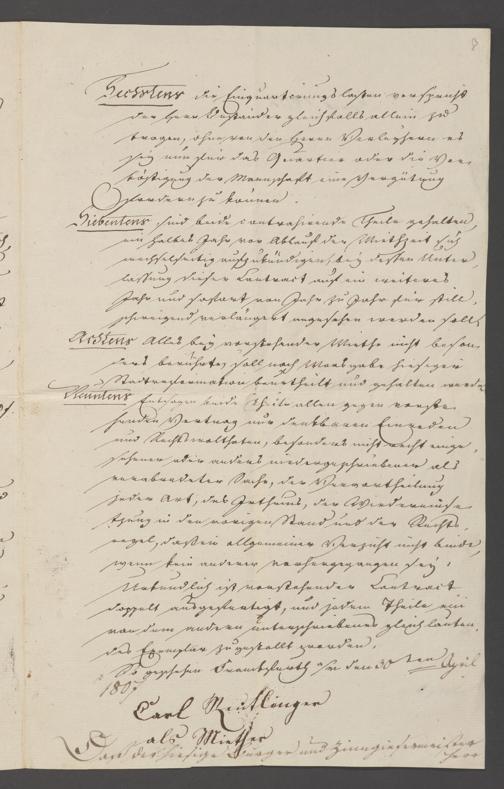 Sechstens die Einquartierungs lasten verspricht
der Herr Beständer gleichfalls allein zu
tragen, ohne von den Herrn Verleyhern es
sey nun für das Quartier oder die Ver-
köstigung der Mannschaft eine Vergütung
fordern zu können.
Siebentens sind beide contrahirende Theile gehalten
ein halbes Jahr vor Ablauf der Miethzeit sich
wechselseitig aufzukündigen, bey dessen Unter
lassung dieser Contract auf ein weiteres
Jahr und sofort von Jahr zu Jahr für still-
schweigend verlängert angesehen werden soll.
Achtens Alles bey vorstehender Miethe nicht beson
ders berührte, soll nach Maasgabe hiesiger
Stadtreformation beurtheilt und gehalten werden
Neuntens Entsagen beide Theile allen gegen vorste-
henden Vertrag nur denkbaren Einreden
und Rechtswolthaten, besonders nicht recht einge-
sehener oder anders niedergeschriebener als
verabredeter Sache, der Vervortheilung
jeder Art, des Irrthums, der Wiedereinse-
tzung in den vorigen Stand und der Rechts-
regel, daß ein allgemeiner Verzicht nicht binde,
wenn kein anderer vorhergegangen sey.
Urkundlich ist vorstehender Contract
doppelt ausgefertigt, und jedem Theile ein
von dem andern unterschriebenes gleichlauten-
des Exemplar zugestellt worden.
So geschehen Frankfurth a/m den 30ten April
Carl Reutlinger
als Miether
der hiesige Bürger und Zinngiesermeister
Herr